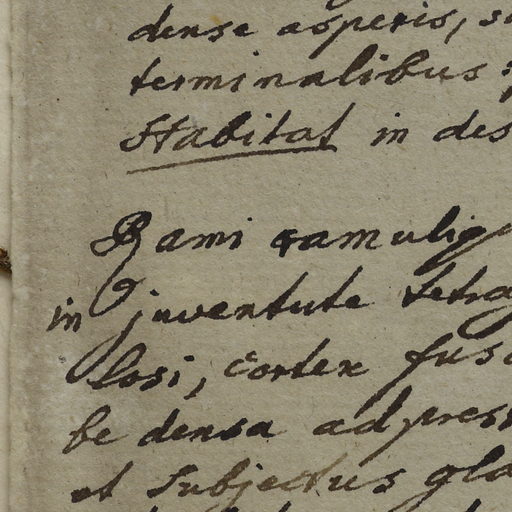 dense asperis, s
terminalibus
Habitat in des
Rami ramuliq
in juventute tetra
losi, cortex fus
be densa adpress
et subjectus gla